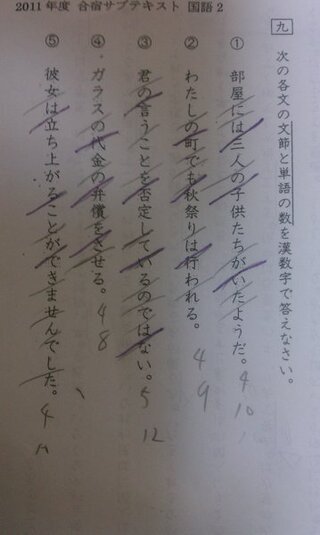 2011年度 合宿サブテキスト 国語2
九
次の各文の文節と単語の数を漢数字で答えなさい。
① 部屋には三人の子供たちがいたようだ。 4 10
② わたしの町でも秋祭りは行われる。 4 9
③ 君の言うことを否定しているのではない。 5 12
④ ガラスの代金の弁償をさせる。 4 8
⑤ 彼女は立ち上がることができませんでした。 4